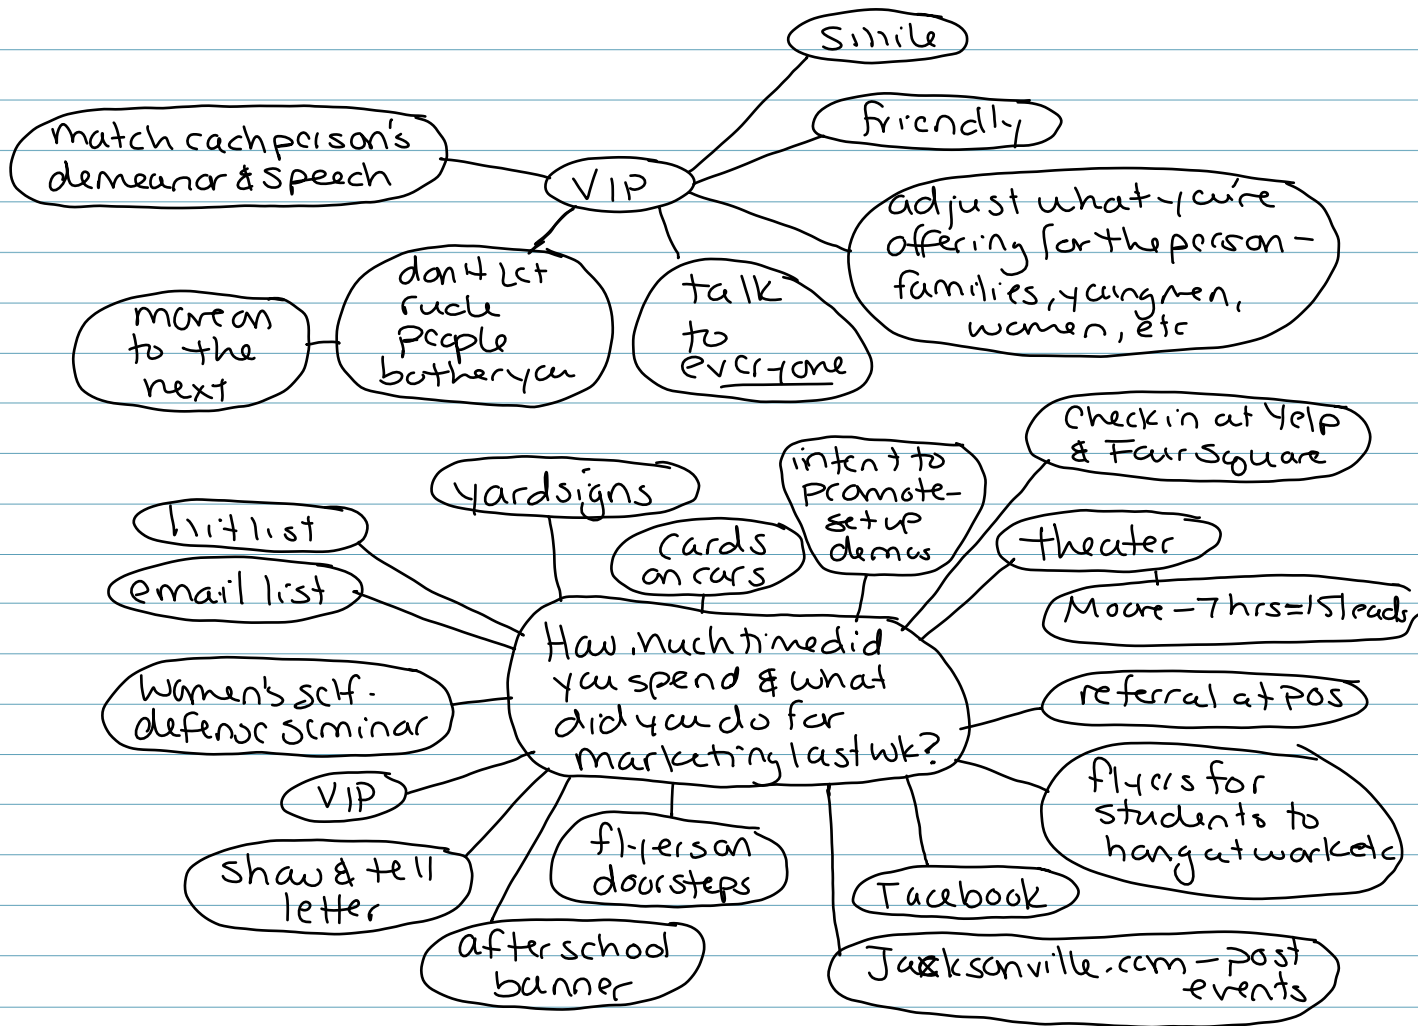 smile
friendly
match each person's
demeanor & speech
VIP
adjust what you're
offering for the person -
families, young men,
women, etc
don't let
rude
people
bother you
talk
to
everyone
move on
to the
next
Check in at Yelp
& FourSquare
intent to
promote -
set up
demos
yard signs
hit list
cards
on cars
theater
email list
Moore - 7 hrs = 15 leads
How much time did
you spend & what
did you do for
marketing last wk?
women's self-
defense seminar
referral at pos
VIP
flyers for
students to
hang at work etc
show & tell
letter
flyers on
doorsteps
Facebook
after school
banner
Jacksonville.com - post
events